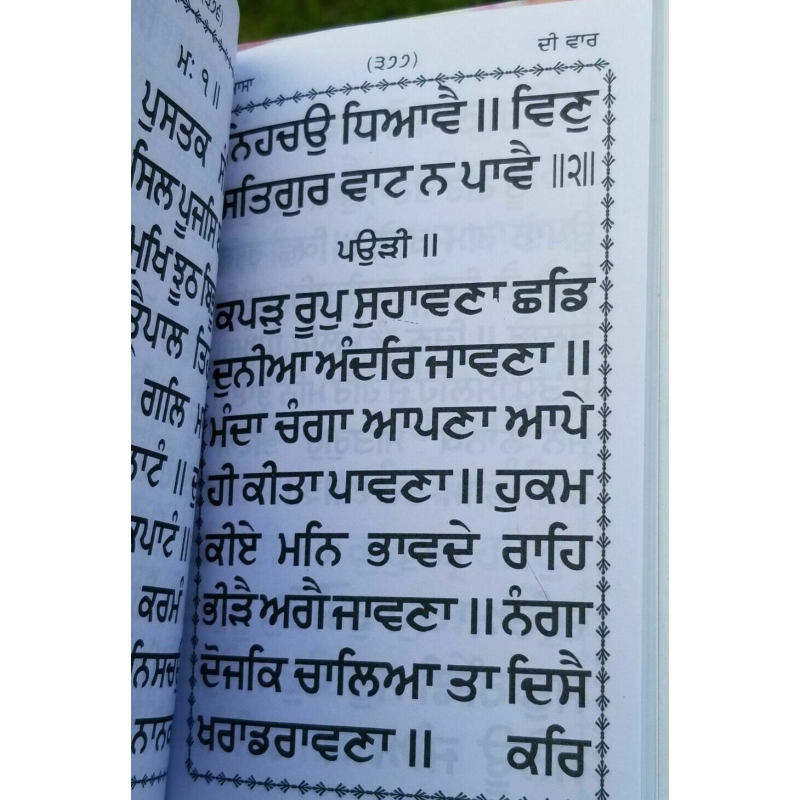 ਮਃ ੧॥
ਪੁਸਤਕ
ਸਿਲ ਪੂਜਸਿ
ਮੁਖਿ ਝੂਠ
ਤ੍ਰੈਪਾਲ
ਗਲਿ
ਕਪਾਟੰ ॥
ਕਰਮੰ
ਨਾਨਕ
ਆਸਾ (੩੭੭) ਦੀ ਵਾਰ
ਨਿਹਚਉ ਧਿਆਵੈ ॥ ਵਿਣੁ
ਸਤਿਗੁਰ ਵਾਟ ਨ ਪਾਵੈ ॥੨॥
ਪਉੜੀ ॥
ਕਪੜੁ ਰੂਪੁ ਸੁਹਾਵਣਾ ਛਡਿ
ਦੁਨੀਆ ਅੰਦਰਿ ਜਾਵਣਾ ॥
ਮੰਦਾ ਚੰਗਾ ਆਪਣਾ ਆਪੇ
ਹੀ ਕੀਤਾ ਪਾਵਣਾ ॥ ਹੁਕਮ
ਕੀਏ ਮਨਿ ਭਾਵਦੇ ਰਾਹਿ
ਭੀੜੈ ਅਗੈ ਜਾਵਣਾ ॥ ਨੰਗਾ
ਦੋਜਕਿ ਚਾਲਿਆ ਤਾ ਦਿਸੈ
ਖਰਾ ਡਰਾਵਣਾ ॥ ਕਰਿ